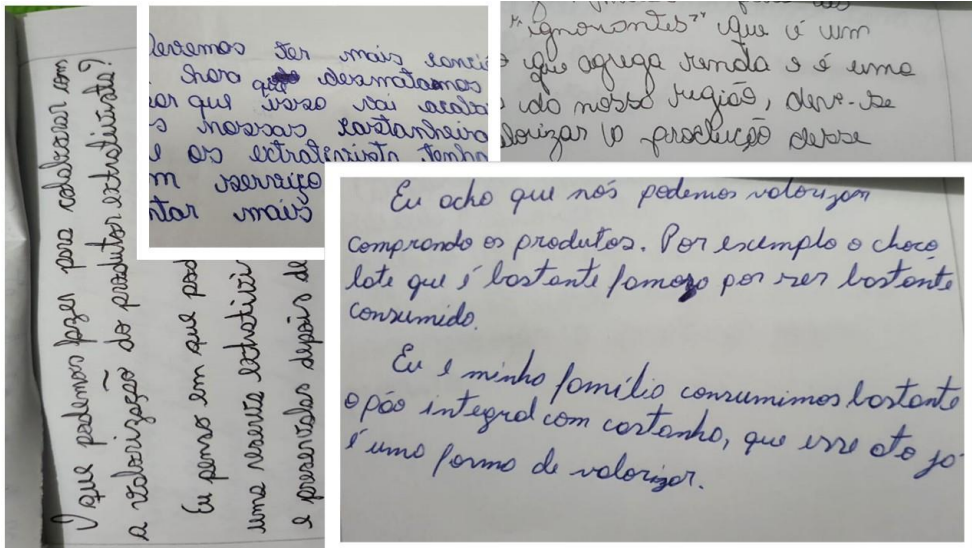 O que podemos fazer para colaborar com
a valorização do produtor extrativista?
Eu penso em que pod
uma reserva extrativi
e preservalas depois de
Devemos ter mais consci
hora que desmatamos
sar que isso vai acaba
s nossas castanheira
e os extrativista tenha
m serviço
ntar mais
"ignorantes" que é um
que agrega renda e é uma
da nossa região, deve-se
alorizar a produção desse
Eu acho que nós podemos valorizar
comprando os produtos. Por exemplo o choco
late que é bastante famozo por ser bastante
consumido.
Eu e minha família consumimos bastante
o pão integral com castanha, que esse ato já
é uma forma de valorizar.